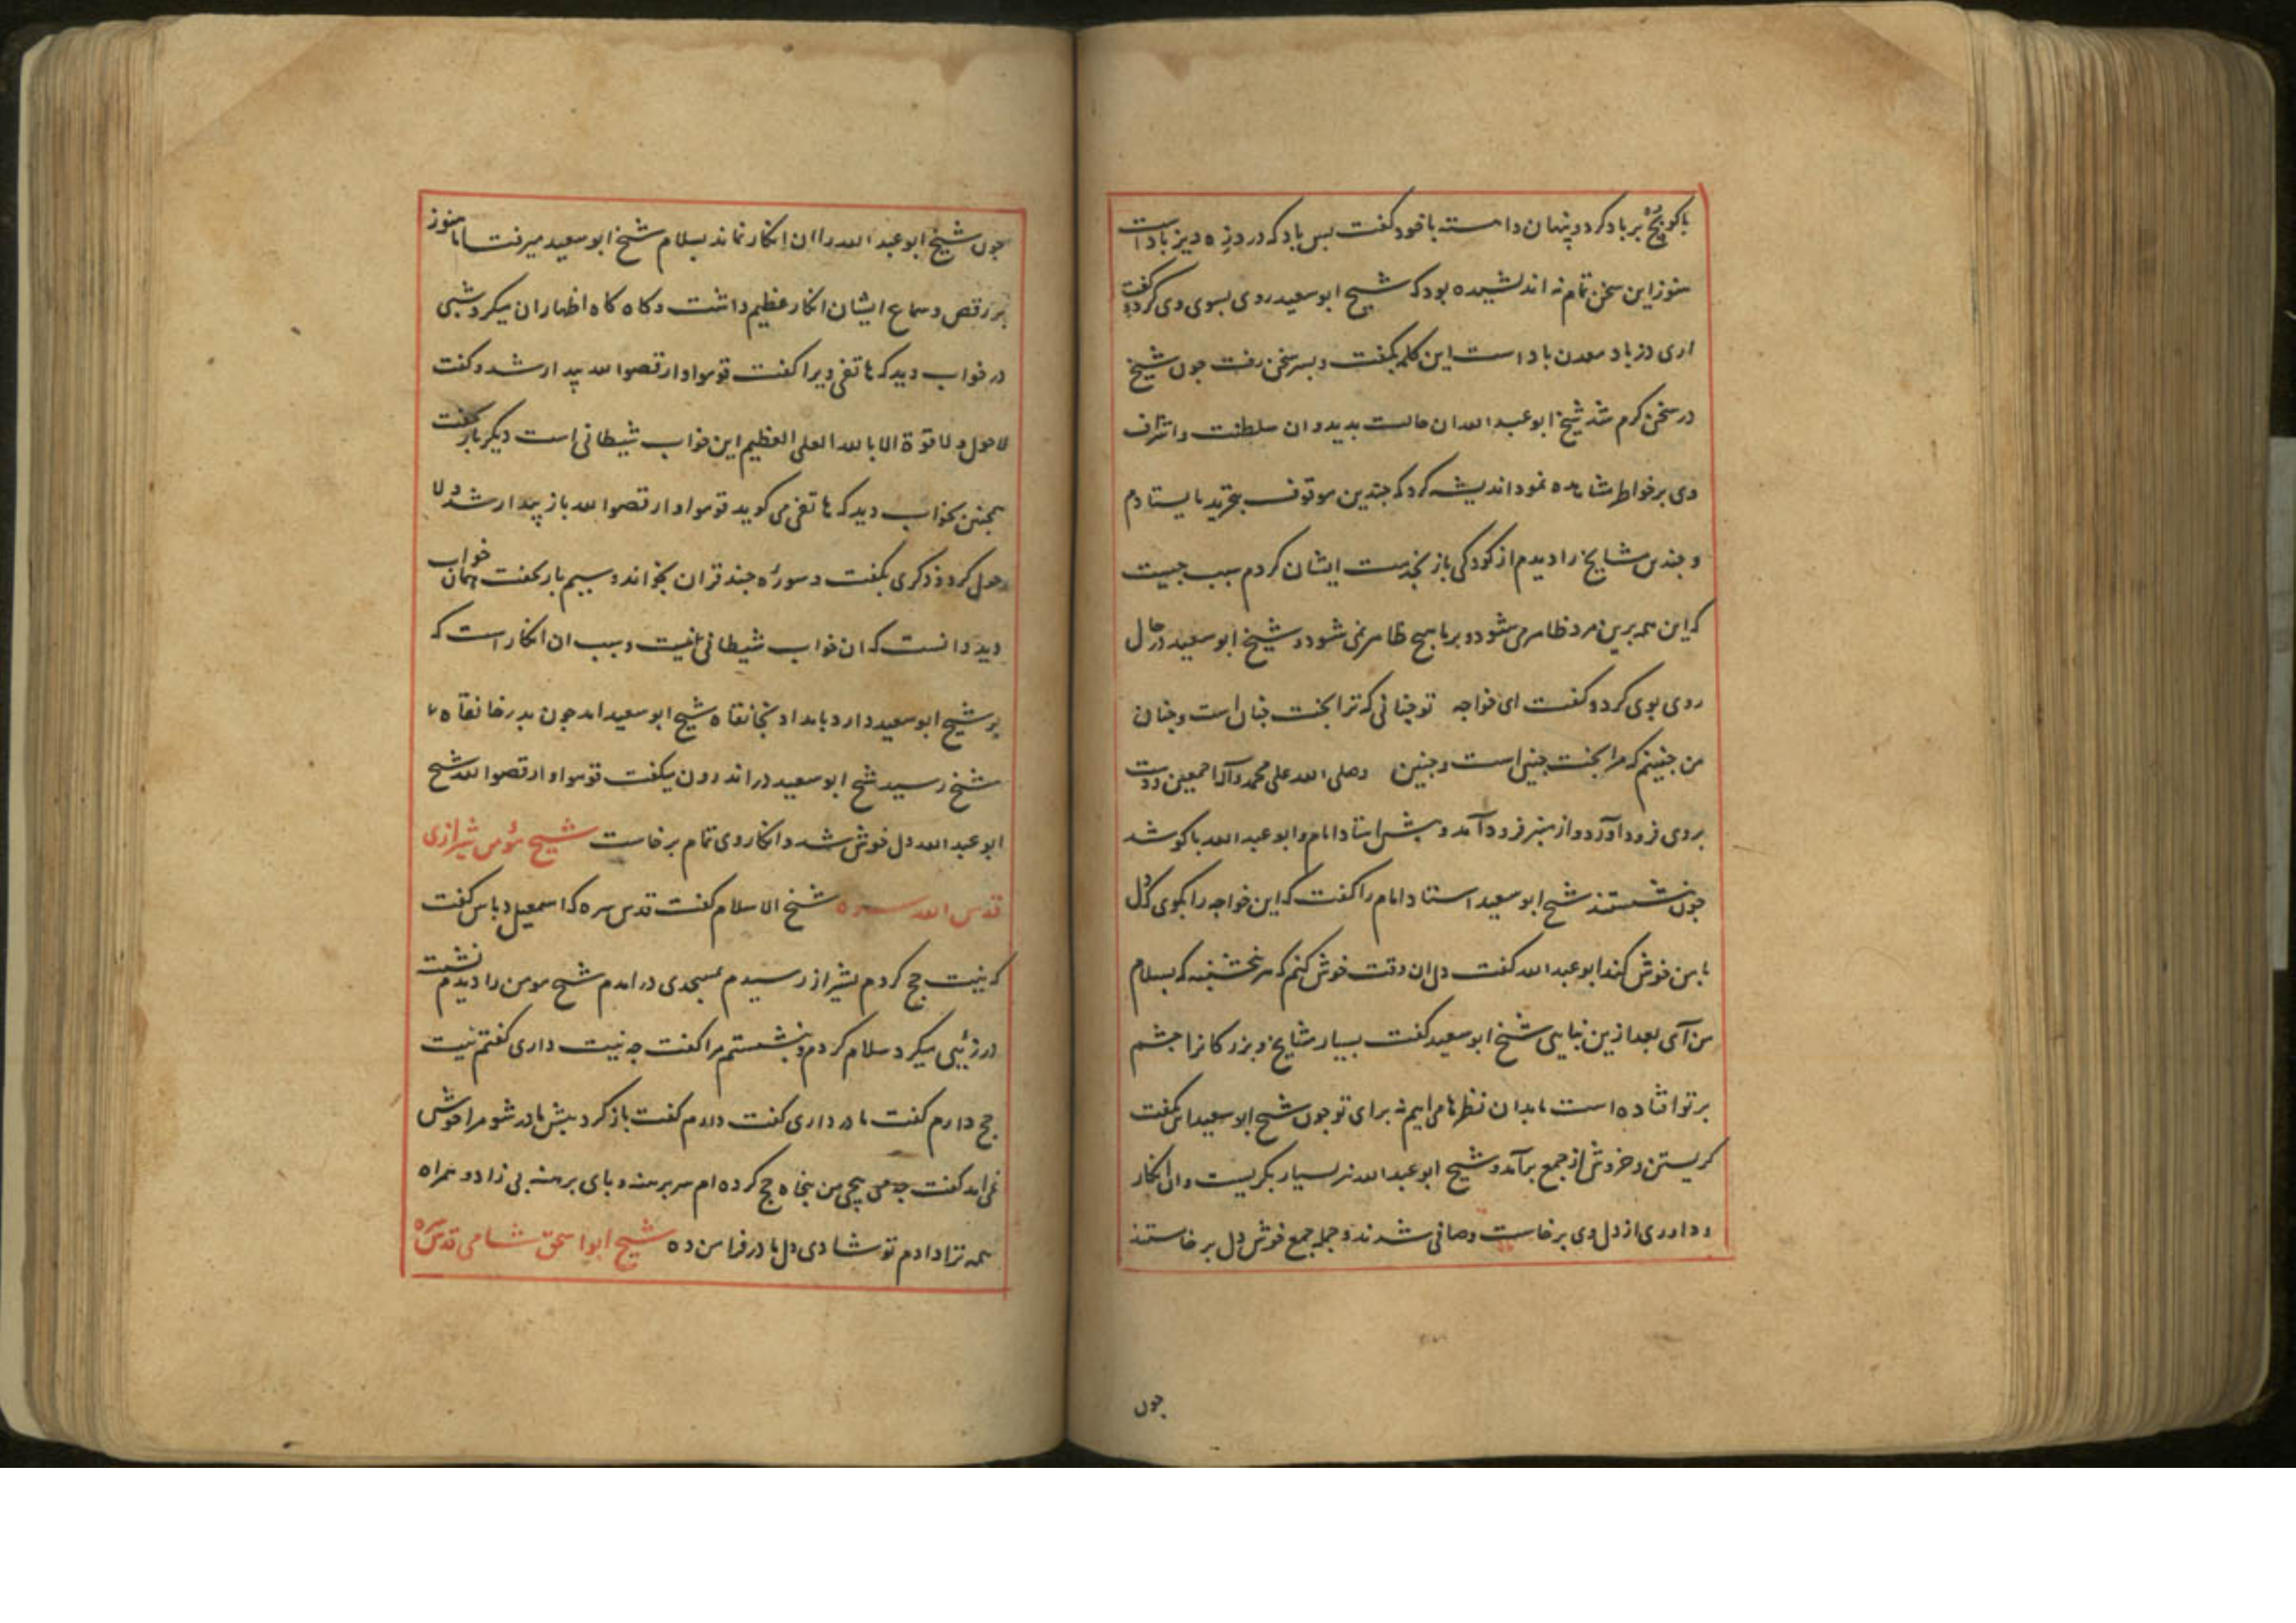 باکو بچهٔ بر باد کرد و پنهان داسته با خود کفت بس باد که در دزه دیز باد است
هنوز این سخن تمام نه اندیشیده بود که شیخ ابو سعید روی بسوی وی کرد و کفت
اری دز باد معدن باد است این کلمه بکفت و بسر سخن رفت جون شیخ
در سخن کرم شد شیخ ابو عبد الله ان حالت بدید و ان سلطنت و اشراف
وی بر خواطر مشاهده نمود اندیشه کرد که جندین موقوف بتجرید بایستادم
و جندین مشایخ را دیدم از کودکی باز بخدمت ایشان کردم سبب جیست
که این همه برین مرد ظاهر می شود و بر ما هیج ظاهر نمی شود و شیخ ابو سعید در حال
روی بوی کرد و کفت ای خواجه تو جنانی که ترا بخت جنان است و جنان
من جنینم که مرا بخت جنین است و جنین وصلی الله علی محمد و آله اجمعین و دست
بروی فرود آورد و از منبر فرود آمد و بیش استاد امام و ابو عبد الله باکو شد
جون بنشستند شیخ ابو سعید استاد امام را کفت که این خواجه را بکوی که دل
با من خوش کند ابو عبد الله کفت دل ان وقت خوش کنم که هر پنجشنبه که بسلام
من آی بعد ازین نیایی شیخ ابو سعید کفت بسیار مشایخ و بزرکانرا جشم
بر تو افتاده است ما بدان نظرها می ایم نه برای تو جون شیخ ابو سعید این بکفت
کریستن و خروش از جمع برآمد و شیخ ابو عبد الله نیز بسیار بکریست و ان انکار
و داوری از دل وی برخاست و صافی شدند و جمله جمع خوش دل برخاستند
جون
جون شیخ ابو عبد الله را ان انکار نماند بسلام شیخ ابو سعید میرفت اما هنوز
بر رقص و سماع ایشان انکار عظیم داشت و کاه کاه اظهار ان میکرد شبی
در خواب دید که هاتفی ویرا کفت قوموا و ارقصوا لله بیدار شد و کفت
لا حول و لا قوة الا بالله العلی العظیم این خواب شیطانی است دیکر بار بخفت
همجنین بخواب دید که هاتفی می کوید قوموا و ارقصوا لله باز بیدار شد و لا
حول کرد و ذکری بکفت و سورهٔ جند قران بخواند و سیم بار بخفت همان خواب
دید دانست که ان خواب شیطانی نیست و سبب ان انکار است که
بر شیخ ابو سعید دارد بامداد بخانقاه شیخ ابو سعید امد جون بدر خانقاه
شیخ رسید شیخ ابو سعید در اندرون میکفت قوموا و ارقصوا لله شیخ
ابو عبد الله دل خوش شد و انکار وی تمام برخاست شیخ مؤمن شیرازی
قدس الله سره شیخ الاسلام کفت قدس سره که اسمعیل دباس کفت
که نیت حج کردم بشیراز رسیدم بمسجدی درامدم شیخ مومن را دیدم نشسته
درزئیی میکرد سلام کردم و بنشستم مرا کفت جه نیت داری کفتم نیت
حج دارم کفت مادر داری کفت دارم کفت باز کرد بیش مادر شو مرا خوش
نمی امد کفت جه می پیچی من بنجاه حج کرده ام سر برهنه و بای برهنه بی زاد و همراه
همه ترا دادم تو شادی دل مادر فرا من ده شیخ ابو اسحق شامی قدس سره